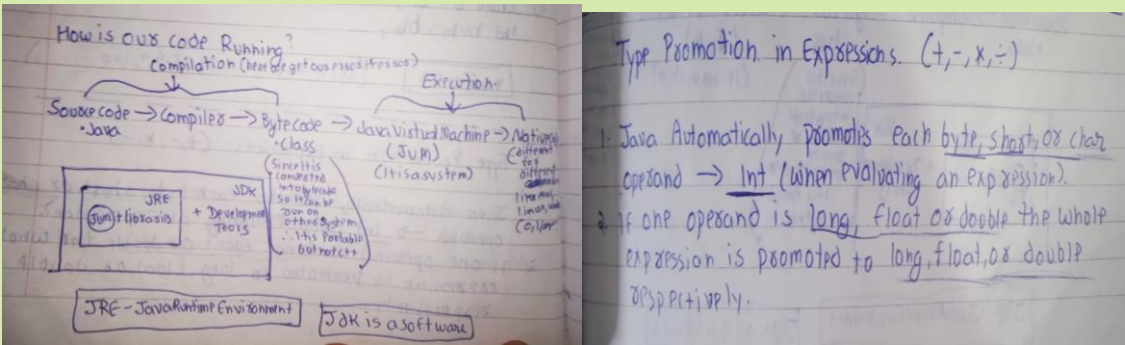 How is our code Running?
Compilation (here we get our error if error)
Execution
Source code → Compiler → Bytecode → Java Virtual Machine → Native
.Java
.class
(JVM)
(It is a system)
(Since It is
converted
into bytecode
so It can be
run on
other System
∴ It is Portable
but not c++
(different
for
different
JDK
JRE
(JVM) + libraries
+ Development
Tools
JRE - Java Runtime Environment
JDK is a software
Type Promotion in Expressions. (+, -, x, ÷)
1. Java Automatically promotes each byte, short, or char
operand → Int (when evaluating an expression).
2. If one operand is long, float or double the whole
expression is promoted to long, float, or double
respectively.